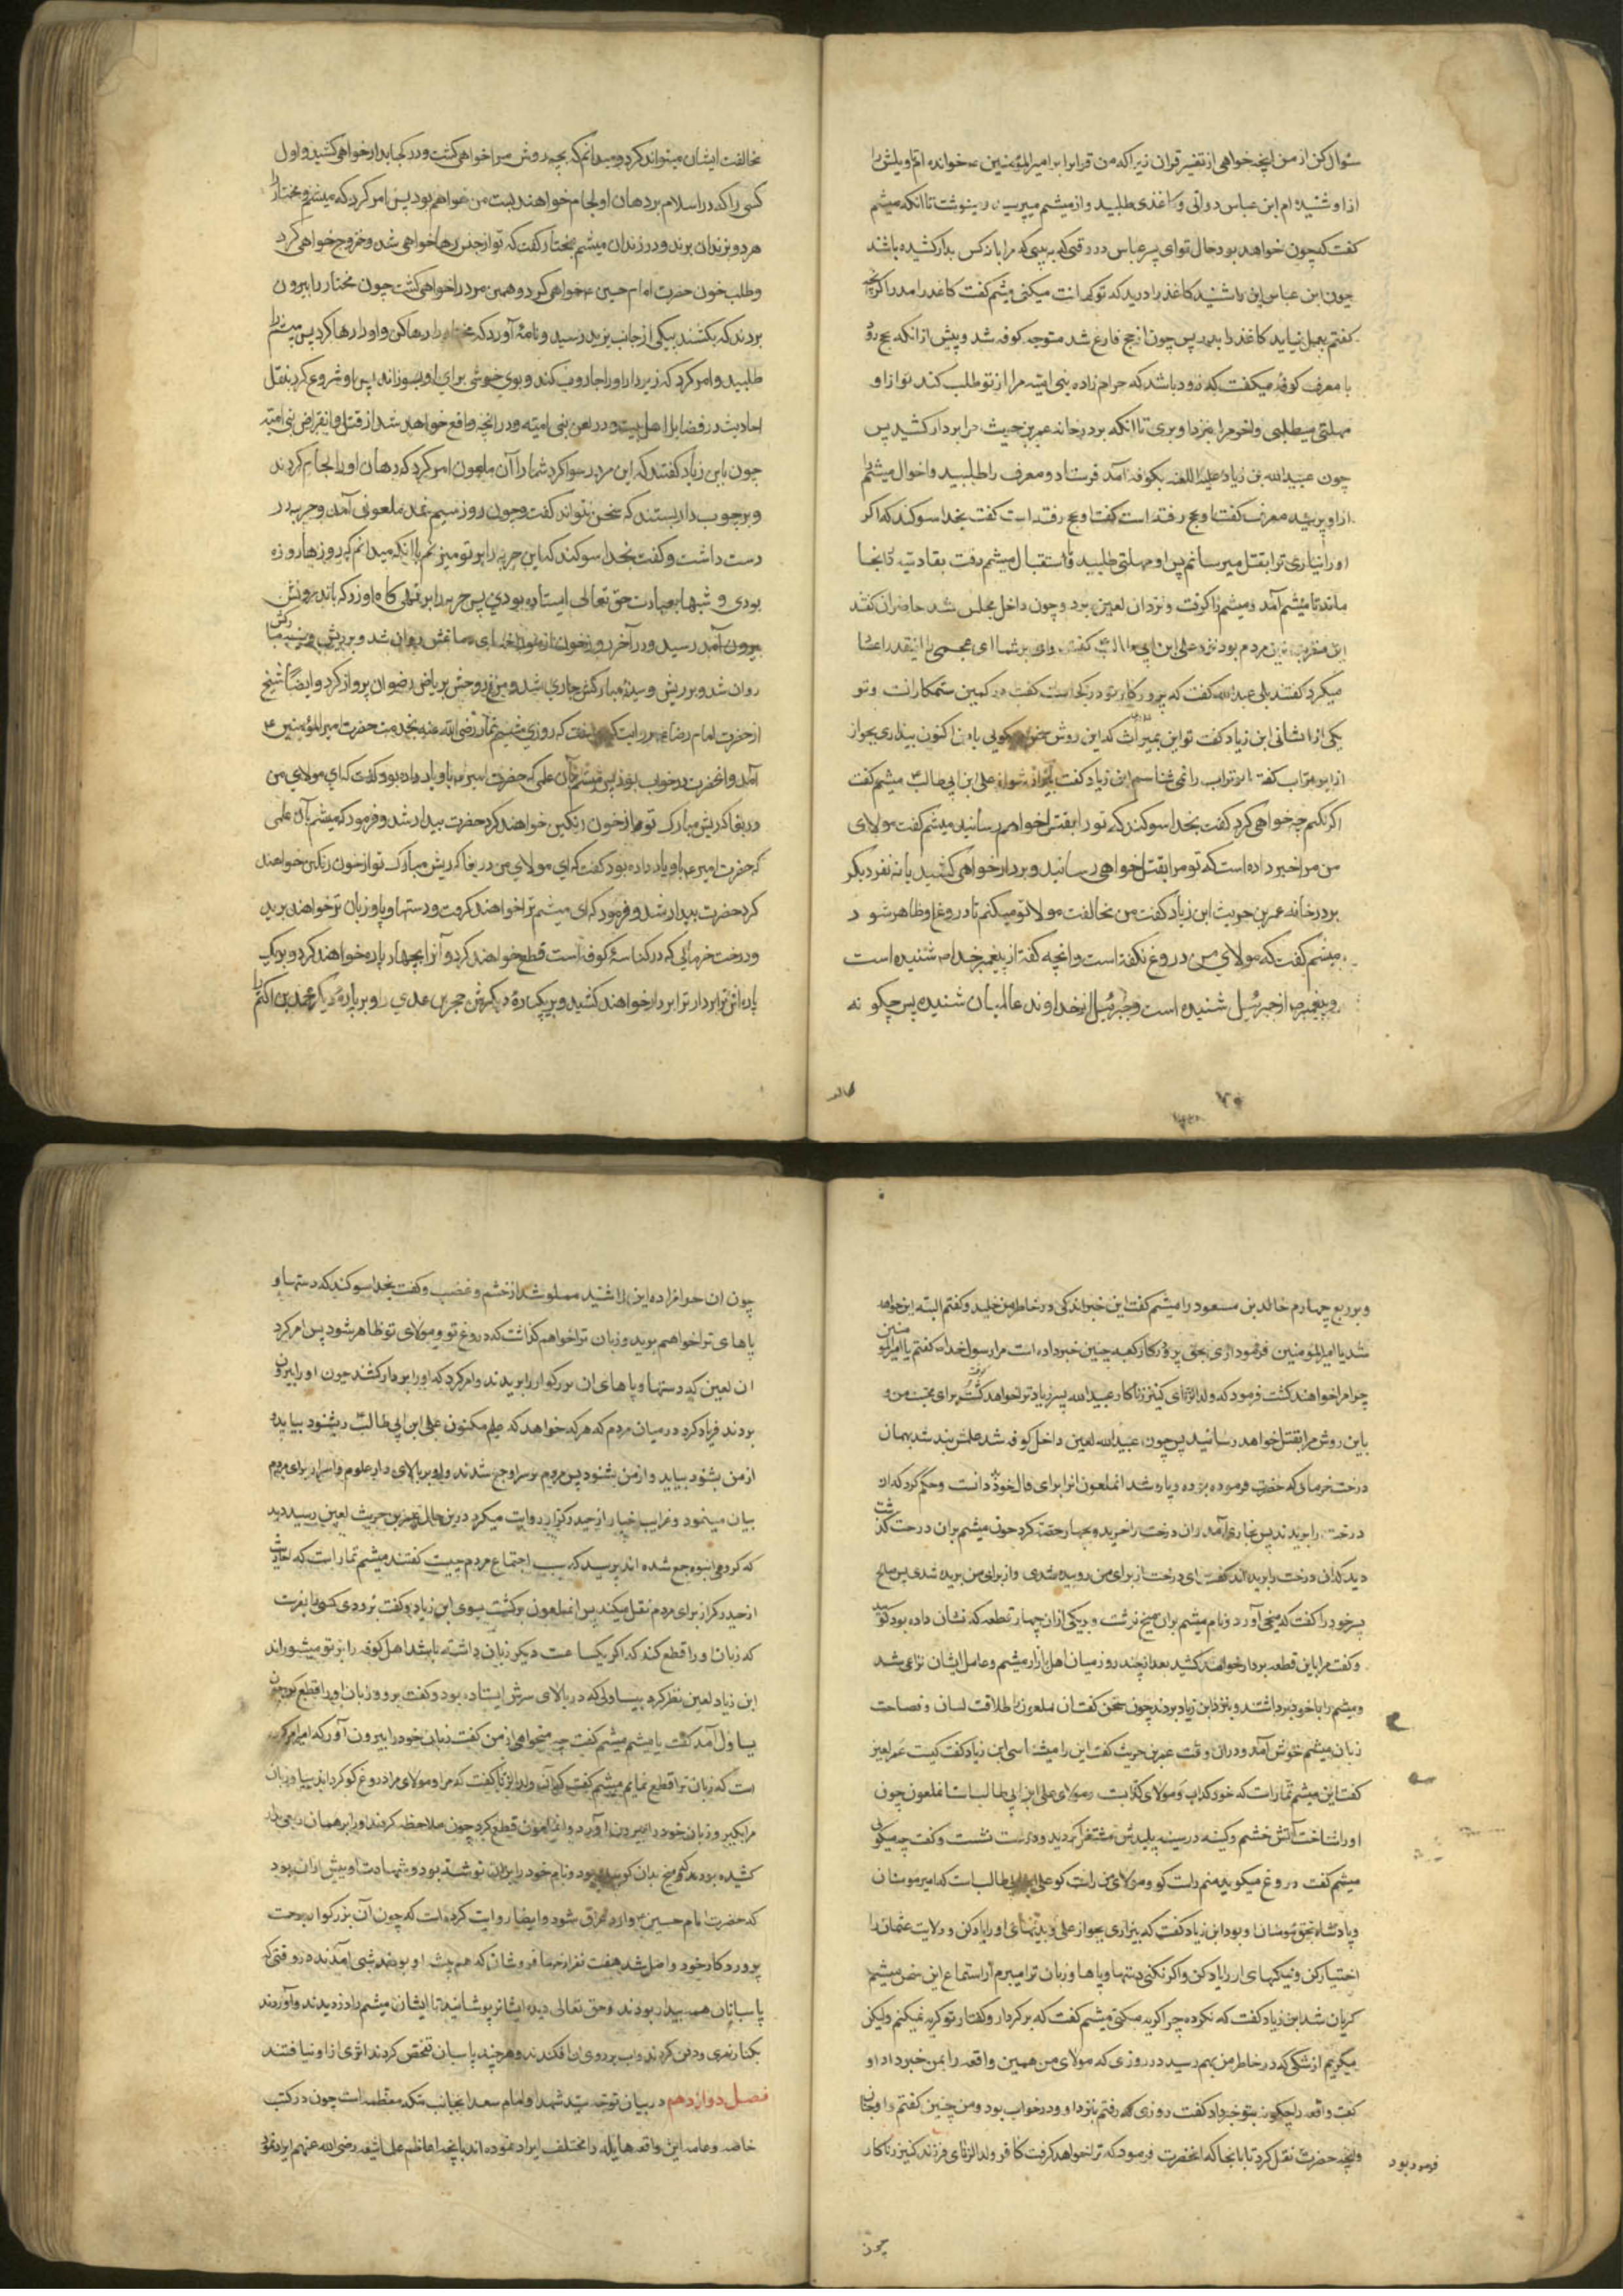 سؤال کن از من آنچه خواهی از تفسیر قران زیرا که من قرانرا بر امیرالمؤمنین ع خوانده ام و تاویلش را
از او شنیده ام ابن عباس دواتی و کاغذی طلبید و از میثم میپرسید و مینوشت تا آنکه میثم
گفت که چون خواهد بود حال تو ای پسر عباس در وقتی که به بینی که مرا با نه کس بدار کشیده باشند
چون ابن عباس این را شنید کاغذ را درید که تو کهانت میکنی میثم گفت کاغذ را مدر اگر آنچه
گفتم بعمل نیاید کاغذ را بدر پس چون از حج فارغ شد متوجه کوفه شد و پیش از آنکه بحج رود
با معرف کوفه میگفت که زود باشد که حرام زاده بنی امیه مرا از تو طلب کند و تو از او
مهلتی میطلبی و اخر مرا بنزد او بری تا انکه بر در خانه عمر بن حریث مرا بر دار کشند پس
چون عبید الله بن زیاد علیه اللعنه بکوفه آمد فرستاد و معرف را طلبید و احوال میثم را
از او پرسید معرف گفت او بحج رفته است گفت او بحج رفته است گفت بخدا سوگند که اگر
او را نیاری ترا بقتل میرسانم پس او مهلتی طلبید و استقبال میثم رفت بقادسیه و در آنجا
ماند تا میثم آمد و میثم را گرفت و نزد ان لعین برد و چون داخل مجلس شد حاضران گفتند
این مقرب ترین مردم بود نزد علی ابن ابی طالب ع گفت وای بر شما ای عجمی را اینقدر اعتبار
میکرد گفتند بلی عبیدالله گفت که پروردگار تو در کجا است گفت در کمین ستمکارانست و تو
یکی از ایشانی ابن زیاد گفت تو این قدر جرات داری که این روش سخن گویی با من اکنون بیزاری بجو از
از ابو تراب گفت ابو تراب را نمی شناسم ابن زیاد گفت بیزار شو از علی ابن ابی طالب ع میثم گفت
اگر نکنم چه خواهی کرد گفت بخدا سوگند که تو را بقتل خواهم رسانید میثم گفت مولای
من مرا خبر داده است که تو مرا بقتل خواهی رسانید و بر دار خواهی کشید با نه نفر دیگر
بر در خانه عمر بن حریث ابن زیاد گفت من مخالفت مولا تو میکنم تا دروغ او ظاهر شود
میثم گفت که مولای من دروغ نگفته است و آنچه گفته از پیغمبر خدا ص شنیده است
و پیغمبر ص از جبرئیل شنیده است و جبرئیل از خداوند عالمیان شنیده پس چگونه
مخالفت ایشان میتواند کرد و میدانم که بچه روش مرا خواهی کشت و در کجا بدار خواهی کشید و اول
کسی را که در اسلام بر دهان او لجام خواهند بست من خواهم بود پس امر کرد که میثم و مختار را
هر دو بزندان بردند و در زندان میثم بمختار گفت که تو از حبس رها خواهی شد و خروج خواهی کرد
و طلب خون حضرت امام حسین ع خواهی کرد و همین مرد را خواهی کشت چون مختار را بیرون
بردند که بکشند پیکی از جانب یزید رسید و نامه آورد که مختار را رها کن و او را رها کرد پس میثم را
طلبید و امر کرد که زیر دار او را جاروب کند و بوی خوشی برای او بسوزاند پس او شروع کرد بنقل
احادیث در فضایل اهل بیت و در لعن بنی امیه و در آنچه واقع خواهد شد از قتل و انقراض بنی امیه
چون با ابن زیاد گفتند که این مرد رسوا کرد شما را آن ملعون امر کرد که دهان او را لجام کردند
و بر چوب دار بستند که سخن نتواند گفت و چون روز سیم شد ملعونی آمد و حربه در
دست داشت و گفت بخدا سوگند که این حربه را بر تو میزنم با آنکه میدانم که روزها روزه
بودی و شبها بعبادت حق تعالی ایستاده بودی پس حربه را بر تهی گاه او زد که باندرونش
رسید و در آخر روز خون از سوراخهای دماغش روان شد و بر ریش و سینه مبارکش
روان شد و بر ریش و سینه مبارکش جاری شد و مرغ روحش بریاض رضوان پرواز کرد و ایضا شیخ
از حضرت امام رضا ع روایت کرده است که روزی میثم تمار رضی الله عنه بخدمت حضرت امیر المؤمنین ع
آمد و آنحضرت در خواب بود پس میثم بآن علمی که حضرت امیر ع باو یاد داده بود گفت که ای مولای من
دریغا که ریش مبارک تو را از خون رنگین خواهند کرد حضرت بیدار شد و فرمود که میثم بآن علمی
که حضرت امیر ع باو یاد داده بود گفت که ای مولای من دریغا که ریش مبارک تو از خون رنگین خواهند
کرد حضرت بیدار شد و فرمود که ای میثم ترا خواهند گرفت و دستها و پا و زبان ترا خواهند برید
و درخت خرمائی که در کناسه کوفه است قطع خواهند کرد و آنرا بچهار پاره خواهند کرد و بر یک
پاره اش ترا بر دار خواهند کشید و بر یکپاره دیگرش حجر بن عدی را و بر پاره دیگر محمد بن اکثم را
و بر ربع چهارم خالد بن مسعود را میثم گفت این خبر اندکی در خاطر من خلید و گفتم البته این خواهد
شد یا امیر المومنین فرمود آری بحق پروردگار کعبه چنین خبر داده است مرا رسول خدا ص گفتم یا امیر المومنین
چرا مرا خواهند کشت فرمود که ولد الزنای کنیز زناکار عبید الله پسر زیاد ترا خواهد گرفت برای محبت من و
باین روش مرا بقتل خواهد رسانید پس چون عبید الله لعین داخل کوفه شد علمش بند شد بهمان
درخت خرمای که حضرت فرموده بود و پاره شد انملعون انرا برای فال خود بد دانست و حکم کرد که آن
درخت را بریدند پس نجاری آمد و ان درخت را خرید و بچهار حصه کرد چون میثم بر ان درخت گذشت
دید که ان درخت را بریده اند گفت ای درخت از برای من روییده شدی و از برای من بریده شدی پس صالح
پسر خود را گفت که میخی آورد و نام میثم بر ان میخ نوشت و بر یکی از ان چهار قطعه که نشان داده بود کوبید
و گفت مرا باین قطعه بر دار خواهند کشید بعد از چند روز میان اهل بازار میثم و عامل ایشان نزاعی شد
و میثم را با خود برداشتند و بنزد ابن زیاد بردند چون سخن گفت ان ملعون را طلاقت لسان و فصاحت
زبان میثم خوش آمد و در ان وقت عمر بن حریث گفت این را میشناسی ابن زیاد گفت کیست عمر لعین
گفت این میثم تمار است که خود کذاب و مولای کذابست و مولای علی ابن ابی طالب است انملعون چون
او را شناخت آتش خشم و کینه در سینه پلیدش مشتعل گردید و درست نشست و گفت چه میگوئی
میثم گفت دروغ میگوید منم راست گو و مولای من راست گو علی ابن ابی طالب است که امیر مومنان
و پادشاه بحق مومنان او بود ابن زیاد گفت که بیزاری بجو از علی و بدیهای او را یاد کن و ولایت عثمان را
اختیار کن و نیکیهای او را یاد کن و اگر نکنی دستها و پاها و زبان ترا میبرم از استماع این سخن میثم
گریان شد ابن زیاد گفت که نکرده چرا گریه میکنی میثم گفت که بر کردار و گفتار تو گریه نمیکنم ولیکن
میگریم از شکی که در خاطر من بهم رسید در روزی که مولای من همین واقعه را بمن خبر داد او
گفت واقعه را چگونه بتو خبر داد گفت روزی که رفتم بنزد او و در خواب بود و من چنین گفتم و او چنان
وانچه حضرت نقل کرد تا بانجا که انحضرت فرمود که ترا خواهد گرفت کافر ولد الزنای فرزند کنیز زناکار
فرموده بود
چون
چون ان حرامزاده این را شنید مملو شد از خشم و غضب و گفت بخدا سوگند که دستها و
پاهای ترا خواهم برید و زبان ترا خواهم گذاشت که دروغ تو و مولای تو ظاهر شود پس امر کرد
ان لعین که دستها و پاهای ان بزرگوار را بریدند و امر کرد که او را بر دار کشند چون او را بیرون
بردند فریاد کرد در میان مردم که هر که خواهد که علم مکنون علی ابن ابی طالب ع بشنود بیاید و
از من بشنود بیاید و از من بشنود پس مردم بر سر او جمع شدند و او بر بالای دار علوم و اسرار برای مردم
بیان مینمود و غرایب اخبار از حیدر کرار روایت میکرد در این حال عمر بن حریث لعین رسید دید
که گروهی انبوه جمع شده اند پرسید که سبب اجتماع مردم چیست گفتند میثم تمار است که احادیث
از حیدر کرار برای مردم نقل میکند پس انملعون برگشت بسوی ابن زیاد و گفت بزودی کسی را بفرست
که زبان او را قطع کند که اگر یکساعت دیگر زبان داشته باشد اهل کوفه را بر تو میشوراند
ابن زیاد لعین نظر کرد بیساولی که در بالای سرش ایستاده بود و گفت برو و زبان او را قطع کن چون
یساول آمد گفت یا میثم میثم گفت چه میخواهی از من گفت زبان خود را بیرون آور که امیر امر کرده
است که زبان ترا قطع نمایم میثم گفت که آن ولد الزنا گفت که مرا و مولای مرا دروغ گو گرداند بیا و زبان
مرا بگیر و زبان خود را بیرون آورد و انملعون قطع کرد چون ملاحظه کردند او را بر همان
کشیده بودند که میخ بدان کوبیده بود و نام خود را بر ان نوشته بود و شهادت او پیش از ان بود
که حضرت امام حسین ع وارد عراق شود و ایضا روایت کرده است که چون آن بزرگوار برحمت
پروردگار خود واصل شد هفت نفر از خرما فروشان که هم پیشه او بودند شبی آمدند در وقتی که
پاسبانان همه بیدار بودند و حق تعالی دیده ایشانرا پوشانید تا ایشان میثم را دزدیدند و آوردند
بکنار نهری و دفن کردند و اب بر روی ان افکندند و هر چند پاسبانان تفحص کردند اثری از او نیافتند
فصل دوازدهم در بیان توجه سید شهدا و امام سعدا بجانب مکه معظمه است چون در کتب
خاصه و عامه این واقعه هایله را مختلف ایراد نموده اند بآنچه اعاظم علمای شیعه رضی الله عنهم ایراد نموده